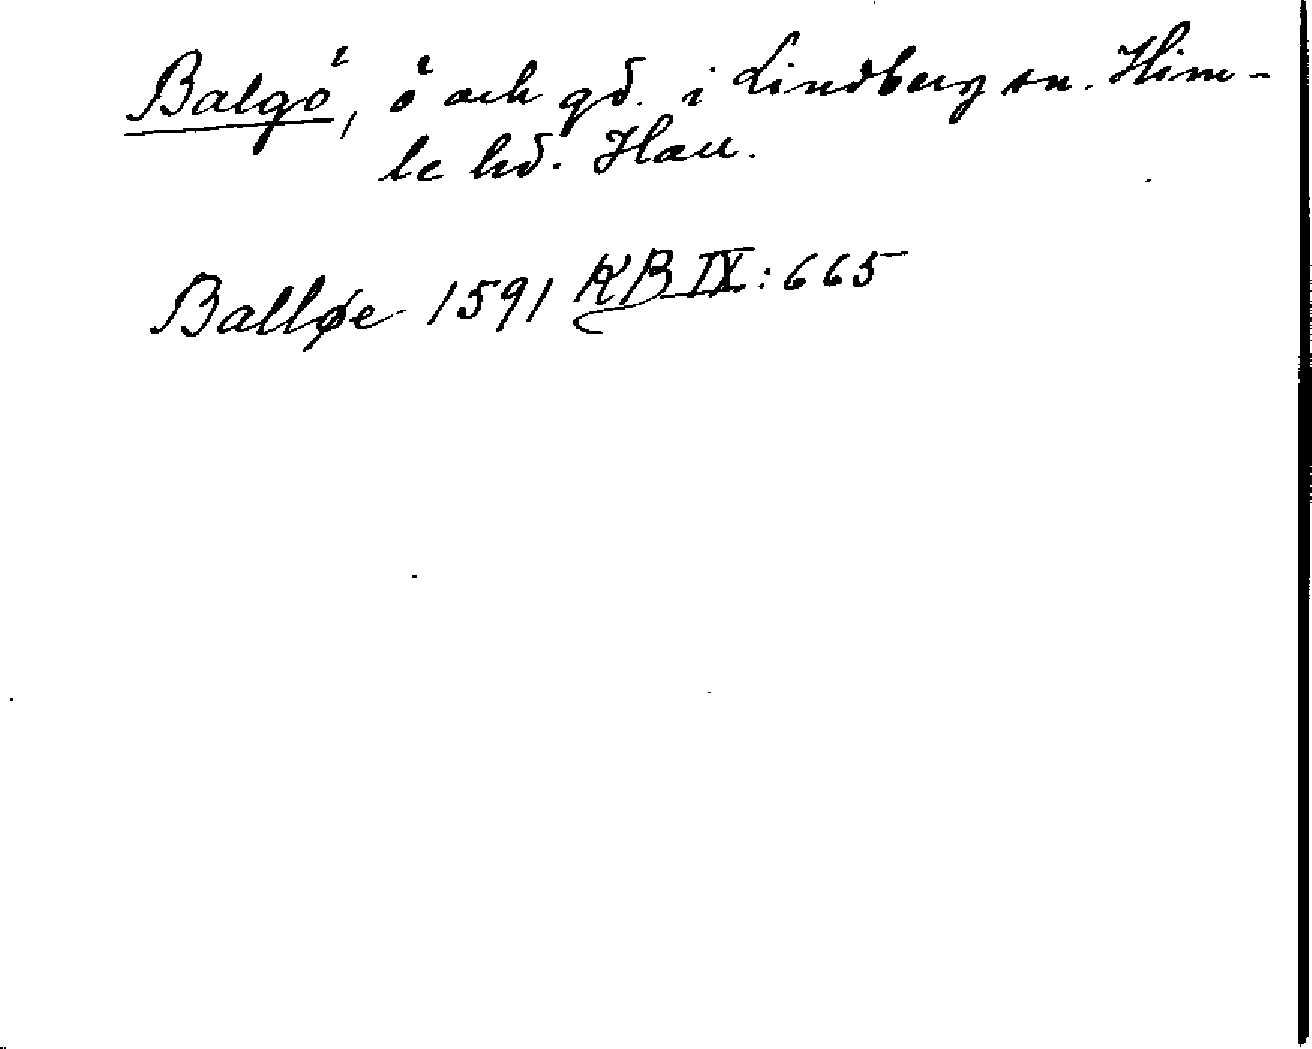 Balgö, ö och gd. i Lindberg sn. Him-
le hd. Hall.
Balløe 1591 KB IX: 665